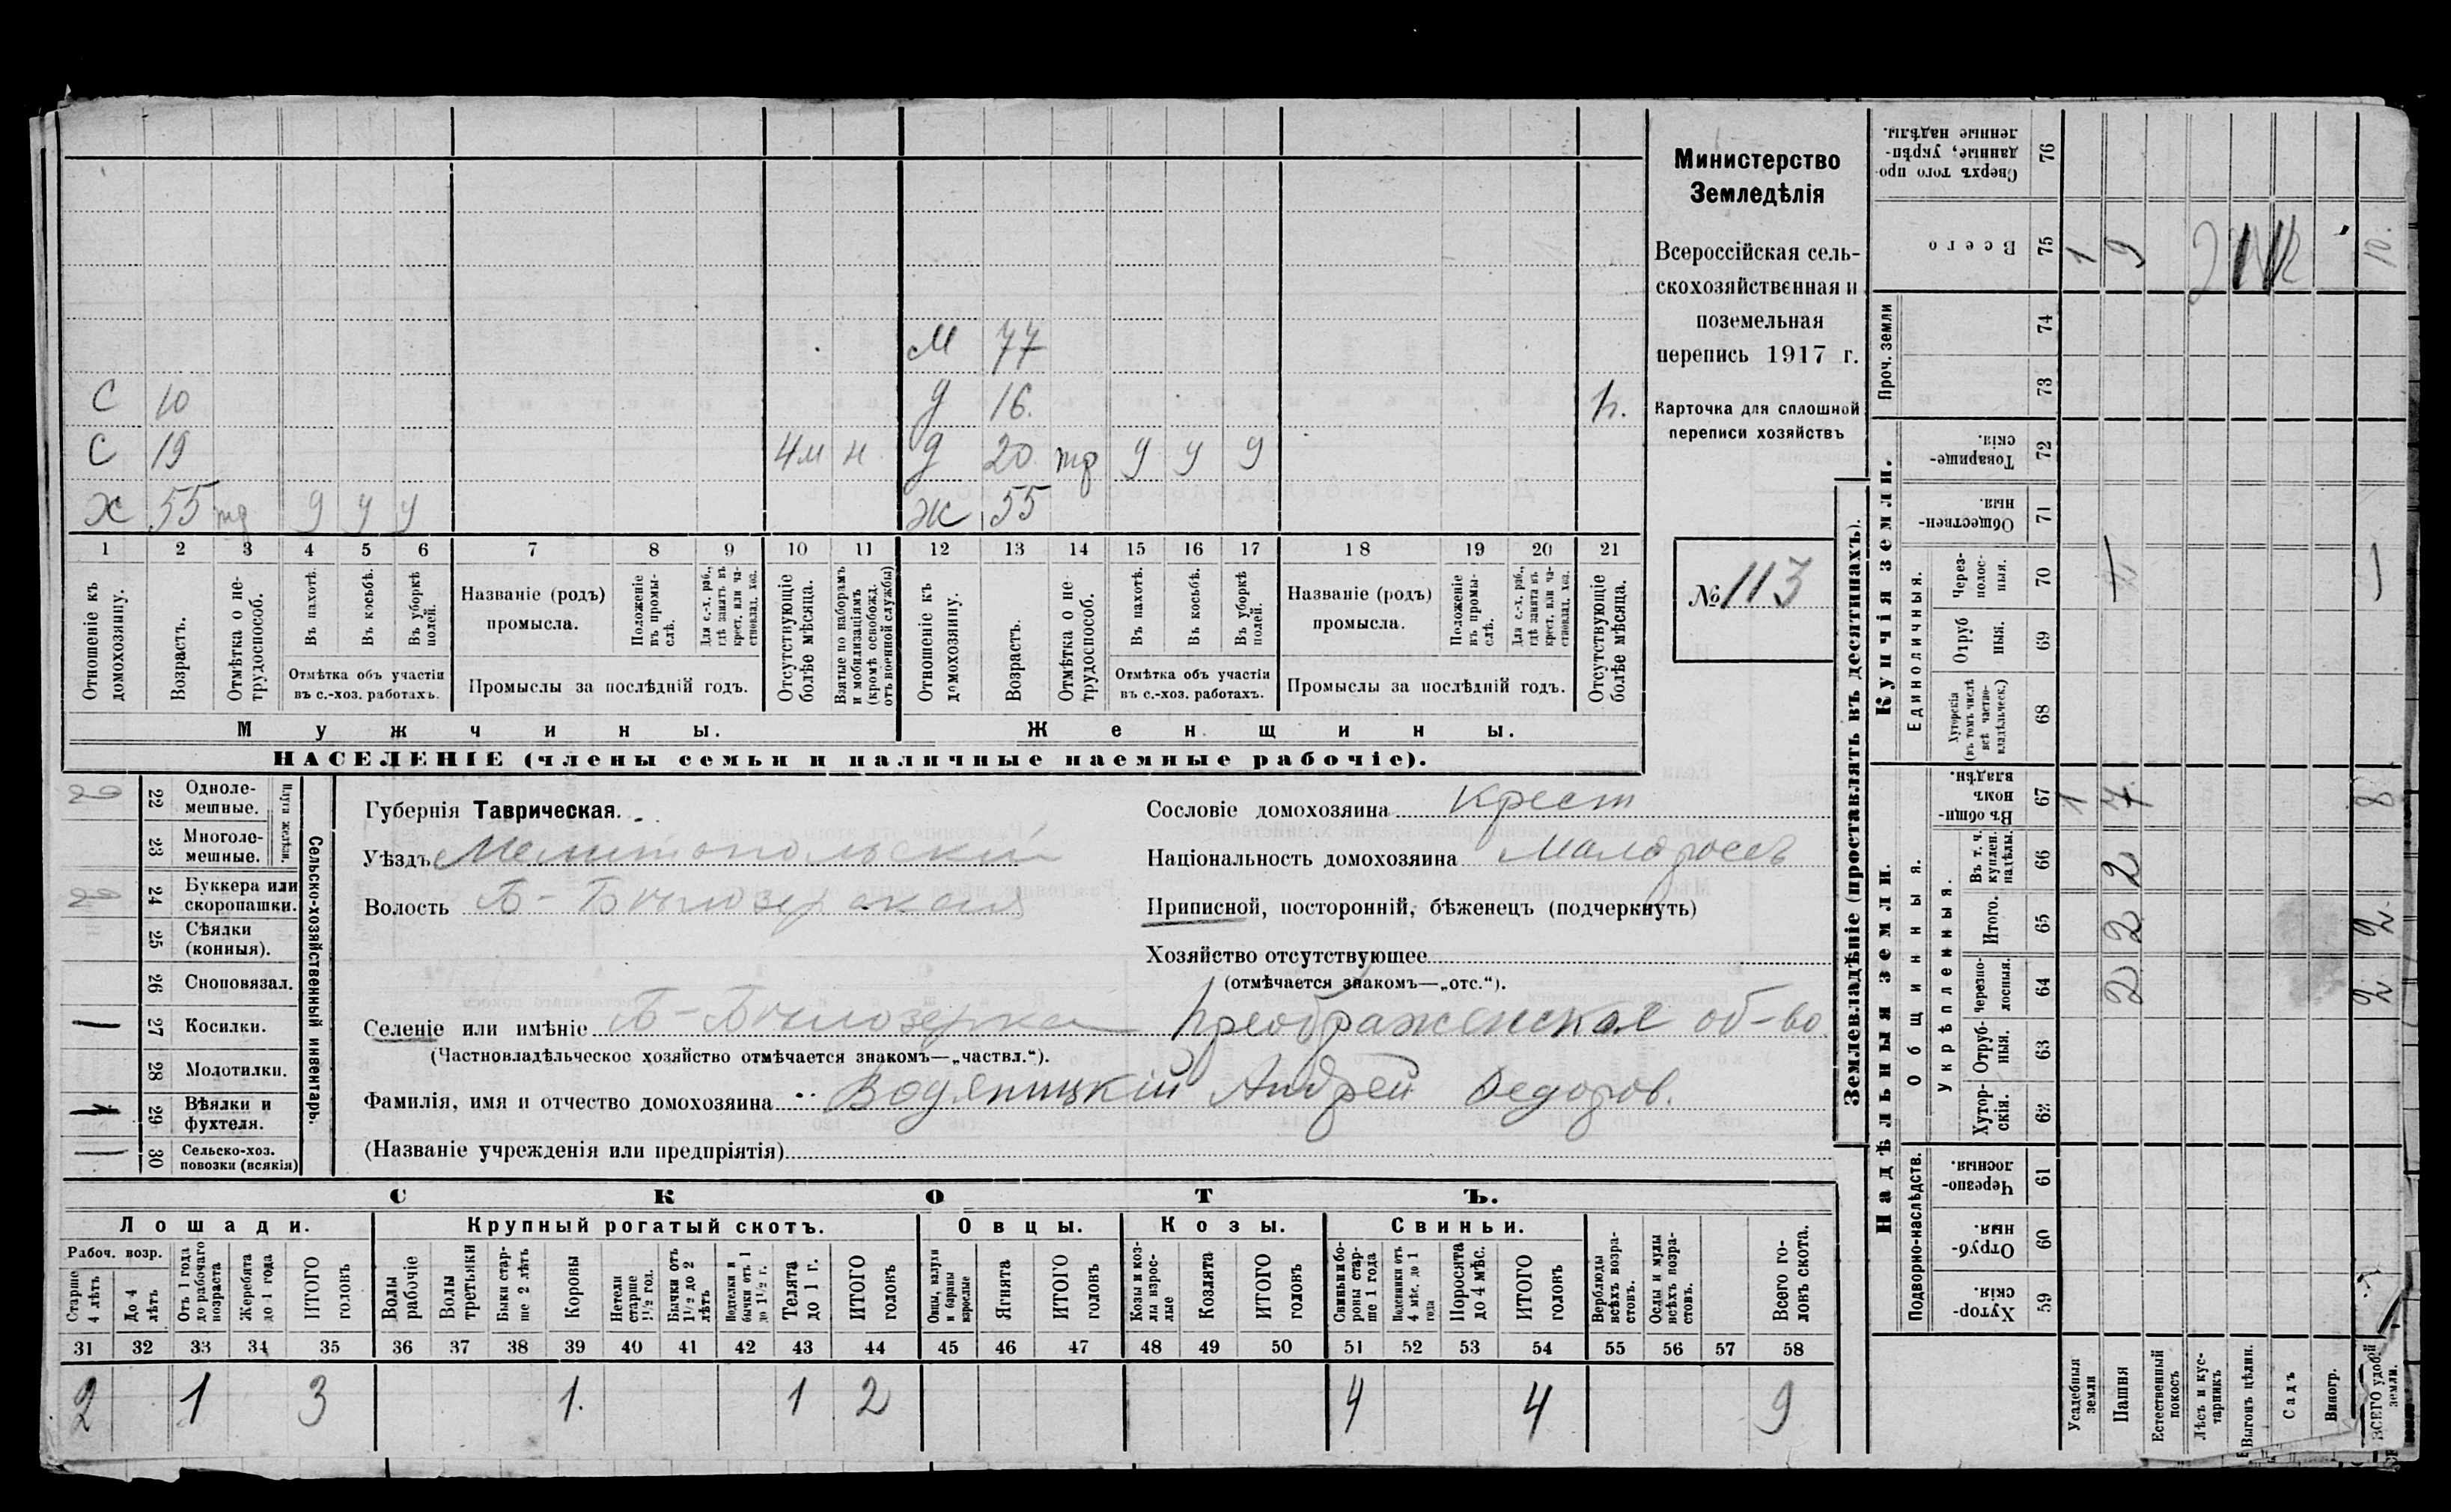 М 77
С 10 д 16. h.
С 19 4м н д 20 тр у у у
Х 55 тр у у у Ж 55
1 2 3 4 5 6 7 8 9 10 11 12 13 14 15 16 17 18 19 20 21
Отношеніе къ домохозяину.
Возрастъ.
Отмѣтка о не-трудоспособ.
Въ пахотѣ.
Въ косьбѣ.
Въ уборкѣ полей.
Отмѣтка объ участіи въ с.-хоз. работахъ.
Названіе (родъ) промысла.
Положеніе въ промы-слѣ.
Для с.-х. раб., гдѣ занятъ въ крест. или ча-стновлад. хоз.
Промыслы за послѣдній годъ.
Отсутствующіе болѣе мѣсяца.
Взятые по наборамъ и мобилизаціямъ (кромѣ освобожд. отъ военной службы)
Отношеніе къ домохозяину.
Возрастъ.
Отмѣтка о не-трудоспособ.
Въ пахотѣ.
Въ косьбѣ.
Въ уборкѣ полей.
Отмѣтка объ участіи въ с.-хоз. работахъ.
Названіе (родъ) промысла.
Положеніе въ промы-слѣ.
Для с.-х. раб., гдѣ занята въ крест. или ча-стновлад. хоз.
Промыслы за послѣдній годъ.
Отсутствующіе болѣе мѣсяца.
Мужчины. Женщины.
НАСЕЛЕНІЕ (члены семьи и наличные наемные рабочіе).
Министерство
Земледѣлія
Всероссійская сель-
скохозяйственная и
поземельная
перепись 1917 г.
Карточка для сплошной
переписи хозяйствъ
№ 113
22 Одноле-мешные.
23 Многоле-мешные.
Плуги желѣзн.
24 Буккера или скоропашки.
25 Сѣялки (конныя).
26 Сноповязал.
27 Косилки.
28 Молотилки.
29 Вѣялки и фухтеля.
30 Сельско-хоз. повозки (всякія)
Сельско-хозяйственный инвентарь.
Губернія Таврическая.
Уѣздъ Мелитопольскій
Волость Б-Бѣлозерская
Сословіе домохозяина Крест
Національность домохозяина Малоросс
Приписной, посторонній, бѣженецъ (подчеркнуть)
Хозяйство отсутствующее
(отмѣчается знакомъ—„отс.“).
Селеніе или имѣніе Б-Бѣлозерка Преображенское об-во
(Частновладѣльческое хозяйство отмѣчается знакомъ—„частвл.“).
Фамилія, имя и отчество домохозяина Водяницкій Андрей Федоров.
(Названіе учрежденія или предпріятія)
СКОТЪ.
Лошади. Крупный рогатый скотъ. Овцы. Козы. Свиньи.
Рабоч. возр.
Старше 4 лѣтъ
До 4 лѣтъ
Отъ 1 года до рабочаго возраста
Жеребята до 1 года
ИТОГО головъ
Волы рабочіе
Волы третьяки
Быки стар-ше 2 лѣтъ
Коровы
Нетели старше 1½ год.
Бычки отъ 1½ до 2 лѣтъ
Подтелки и бычки отъ 1 до 1½ г.
Телята до 1 г.
ИТОГО головъ
Овцы, валухи и бараны взрослые
Ягнята
ИТОГО головъ
Козы и коз-лы взрос-лые
Козлята
ИТОГО головъ
Свиньи и бо-ровы стар-ше 1 года
Подсвинки отъ 4 мѣс. до 1 года
Поросята до 4 мѣс.
ИТОГО головъ
Верблюды всѣхъ возра-стовъ.
Ослы и мулы всѣхъ возра-стовъ.
Всего го-ловъ скота.
31 32 33 34 35 36 37 38 39 40 41 42 43 44 45 46 47 48 49 50 51 52 53 54 55 56 57 58
2 1 3 1. 1 2 4 4 9
Землевладѣніе (проставлять въ десятинахъ).
Купчія земли.
Надѣльныя земли.
Сверхъ того про-данные, укрѣп-ленные надѣлы. 76
Всего 75 1 9 10.
Проч. земли 74 73
Товарище-скія. 72
Обществен-ныя. 71
Единоличныя.
Через-полос-ныя. 70
Отруб ныя. 69
Хуторскія (въ томъ числѣ всѣ частно-владѣльческ.) 68
Общинныя.
Въ общи-номъ владѣн. 67 1 7 8
Укрѣпленныя.
Въ т. ч. куплен. надѣлы. 66 2
Итого. 65 2 2.
Черезпо-лосныя. 64 2 2
Отруб-ныя. 63
Хутор-скія. 62
Подворно-наслѣдств.
Черезпо-лосныя. 61
Отруб-ныя. 60
Хутор-скія. 59
Усадебныя земли
Пашня
Естественный покосъ
Лѣсъ и кус-тарникъ
Выгонъ цѣлин.
Садъ
Виногр.
ВСЕГО удобной земли.